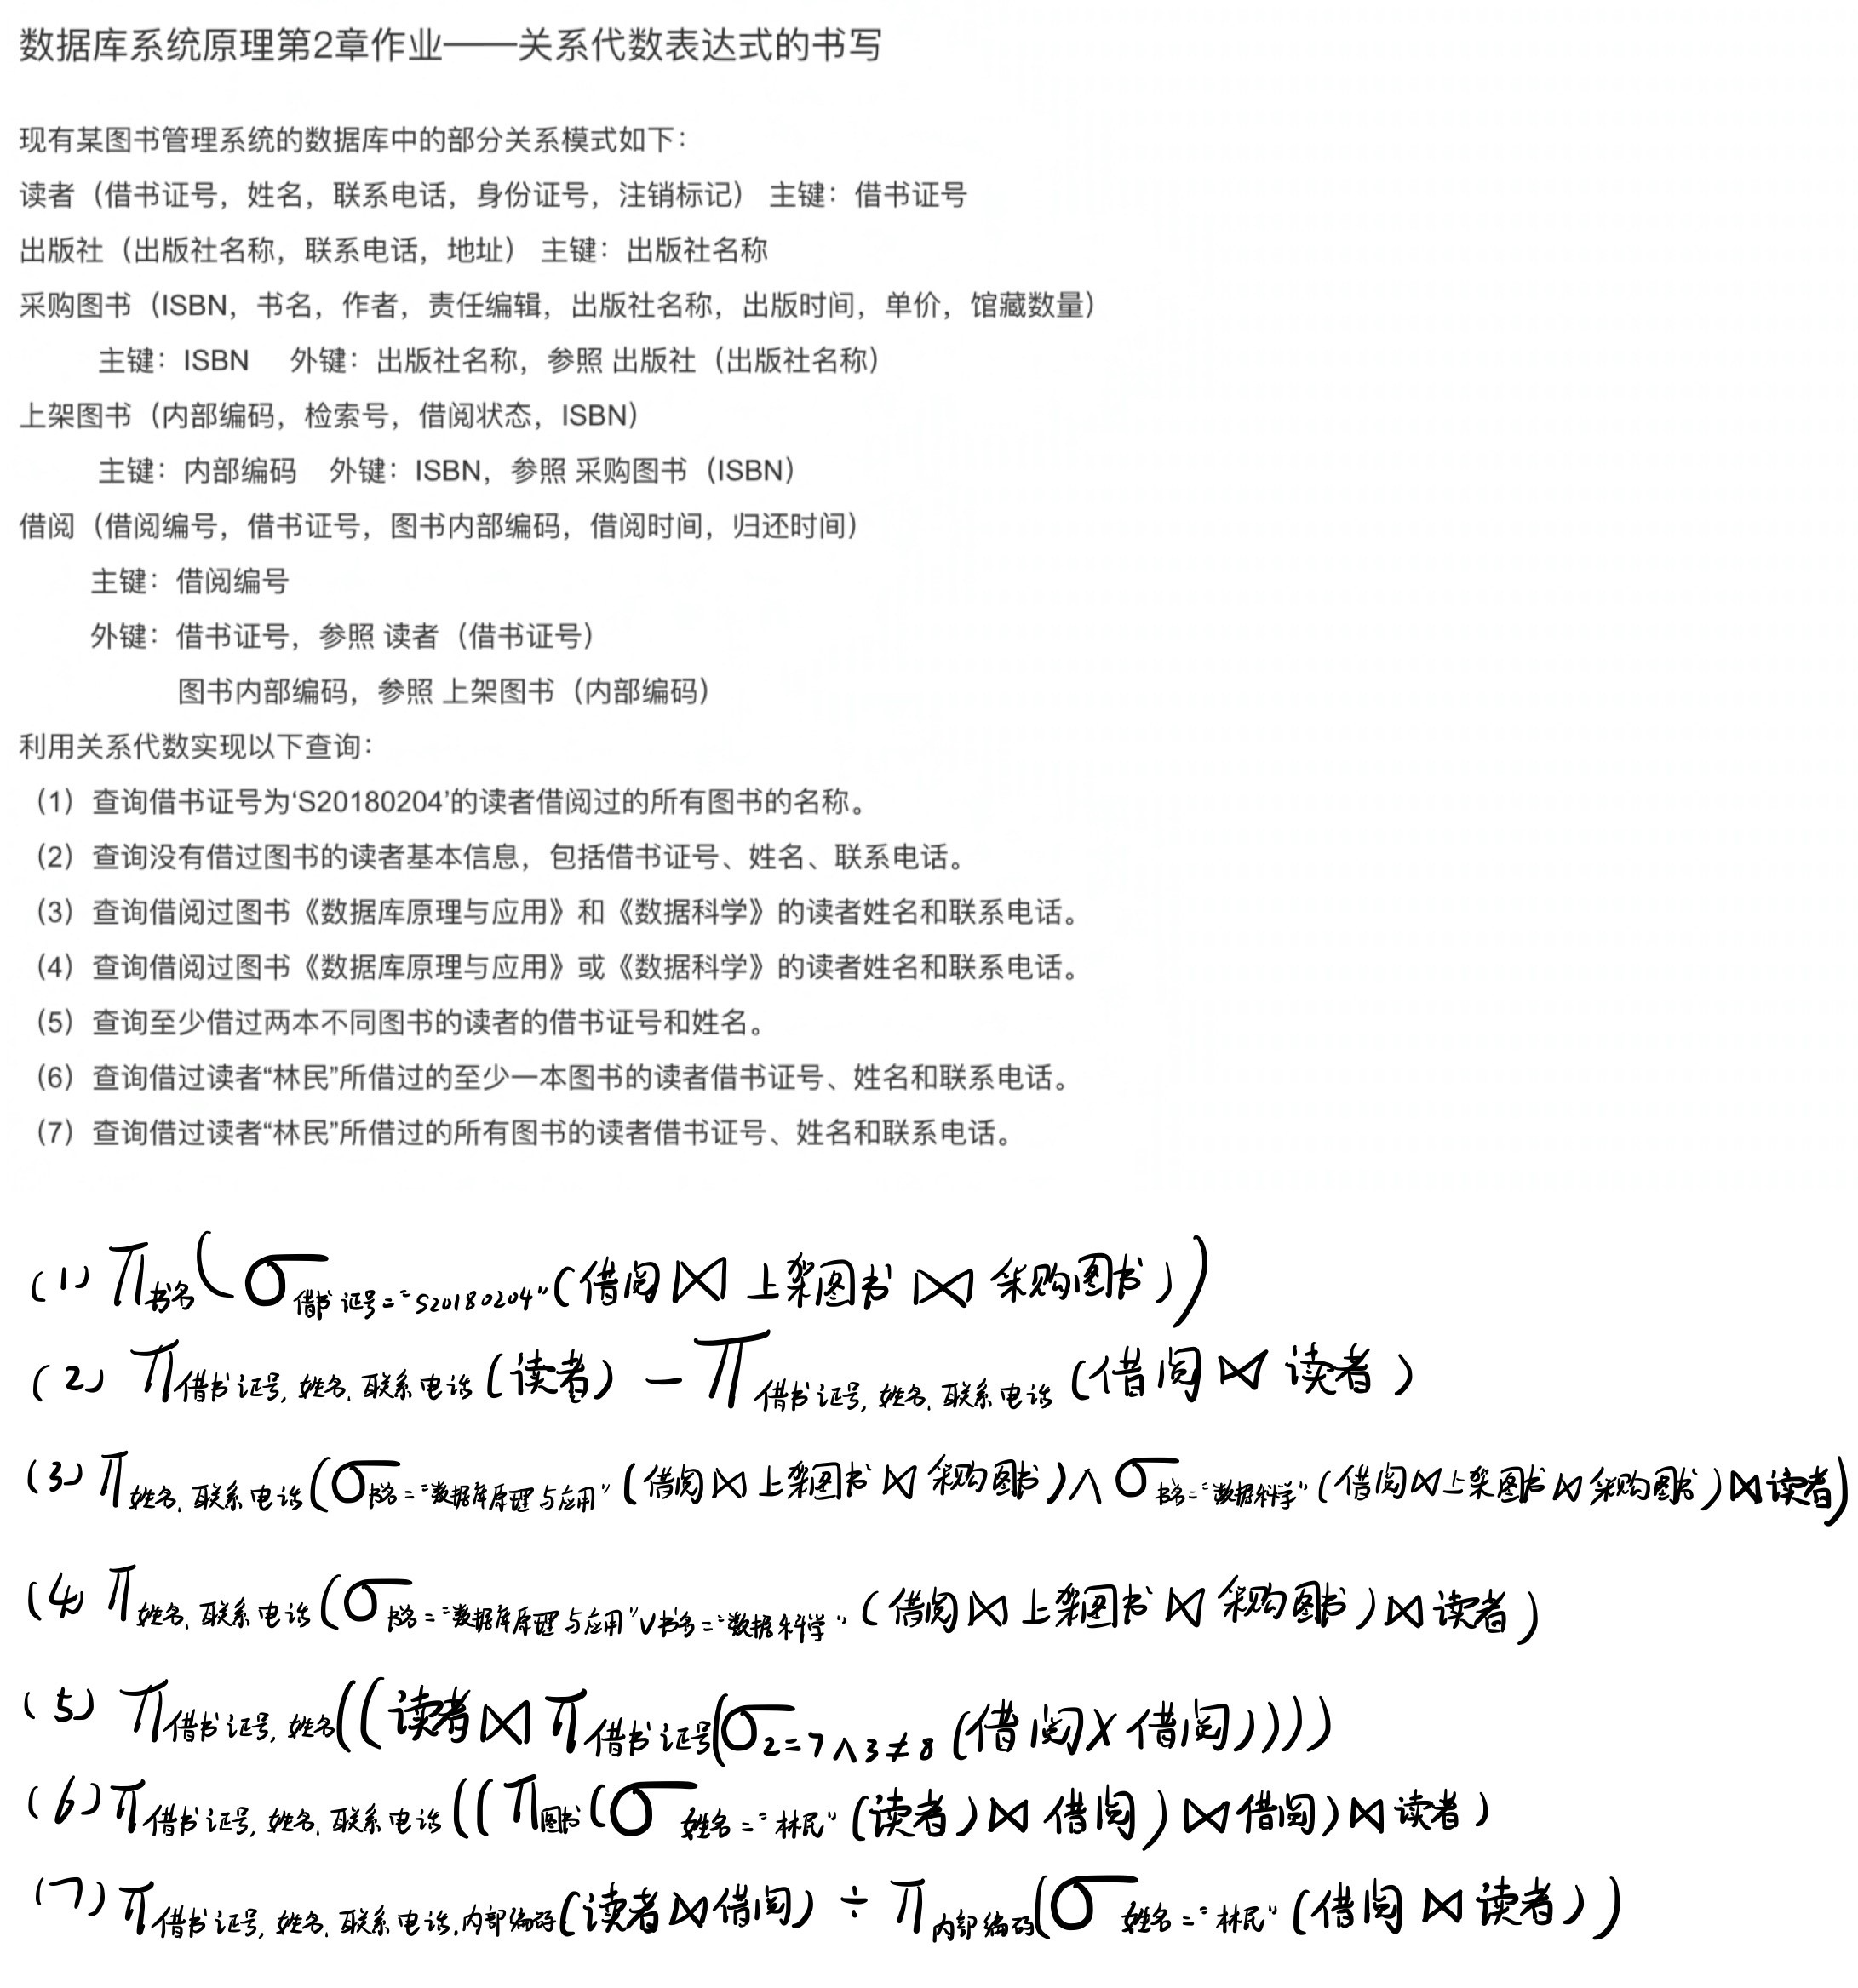 数据库系统原理第2章作业——关系代数表达式的书写
现有某图书管理系统的数据库中的部分关系模式如下：
读者（借书证号，姓名，联系电话，身份证号，注销标记） 主键：借书证号
出版社（出版社名称，联系电话，地址） 主键：出版社名称
采购图书（ISBN，书名，作者，责任编辑，出版社名称，出版时间，单价，馆藏数量）
主键：ISBN 外键：出版社名称，参照 出版社（出版社名称）
上架图书（内部编码，检索号，借阅状态，ISBN）
主键：内部编码 外键：ISBN，参照 采购图书（ISBN）
借阅（借阅编号，借书证号，图书内部编码，借阅时间，归还时间）
主键：借阅编号
外键：借书证号，参照 读者（借书证号）
图书内部编码，参照 上架图书（内部编码）
利用关系代数实现以下查询：
（1）查询借书证号为‘S20180204’的读者借阅过的所有图书的名称。
（2）查询没有借过图书的读者基本信息，包括借书证号、姓名、联系电话。
（3）查询借阅过图书《数据库原理与应用》和《数据科学》的读者姓名和联系电话。
（4）查询借阅过图书《数据库原理与应用》或《数据科学》的读者姓名和联系电话。
（5）查询至少借过两本不同图书的读者的借书证号和姓名。
（6）查询借过读者“林民”所借过的至少一本图书的读者借书证号、姓名和联系电话。
（7）查询借过读者“林民”所借过的所有图书的读者借书证号、姓名和联系电话。
(1) π书名(σ借书证号="S20180204"(借阅⋈上架图书⋈采购图书))
(2) π借书证号,姓名,联系电话(读者)－π借书证号,姓名,联系电话(借阅⋈读者)
(3) π姓名,联系电话(σ书名="数据库原理与应用"(借阅⋈上架图书⋈采购图书)∧σ书名="数据科学"(借阅⋈上架图书⋈采购图书)⋈读者)
(4) π姓名,联系电话(σ书名="数据库原理与应用"∨书名="数据科学"(借阅⋈上架图书⋈采购图书)⋈读者)
(5) π借书证号,姓名((读者⋈π借书证号(σ2=7∧3≠8(借阅×借阅))))
(6) π借书证号,姓名,联系电话((π图书(σ姓名="林民"(读者)⋈借阅)⋈借阅)⋈读者)
(7) π借书证号,姓名,联系电话,内部编码(读者⋈借阅)÷π内部编码(σ姓名="林民"(借阅⋈读者))